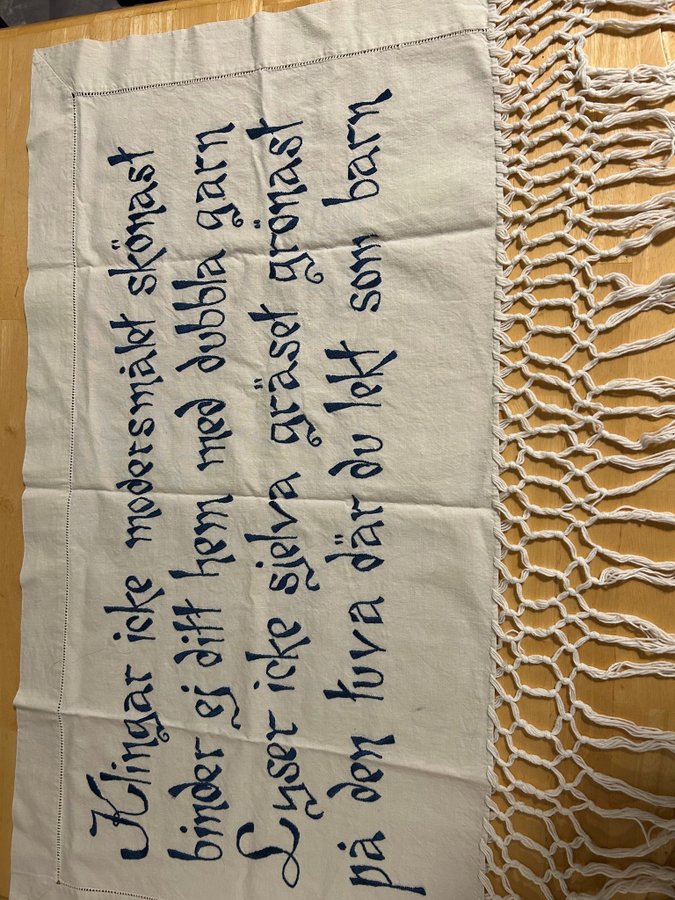 Klingar icke modersmålet skönast
binder ej ditt hem med dubbla garn
Lyser icke sjelva gräset grönast
på den tuva där du lekt som barn